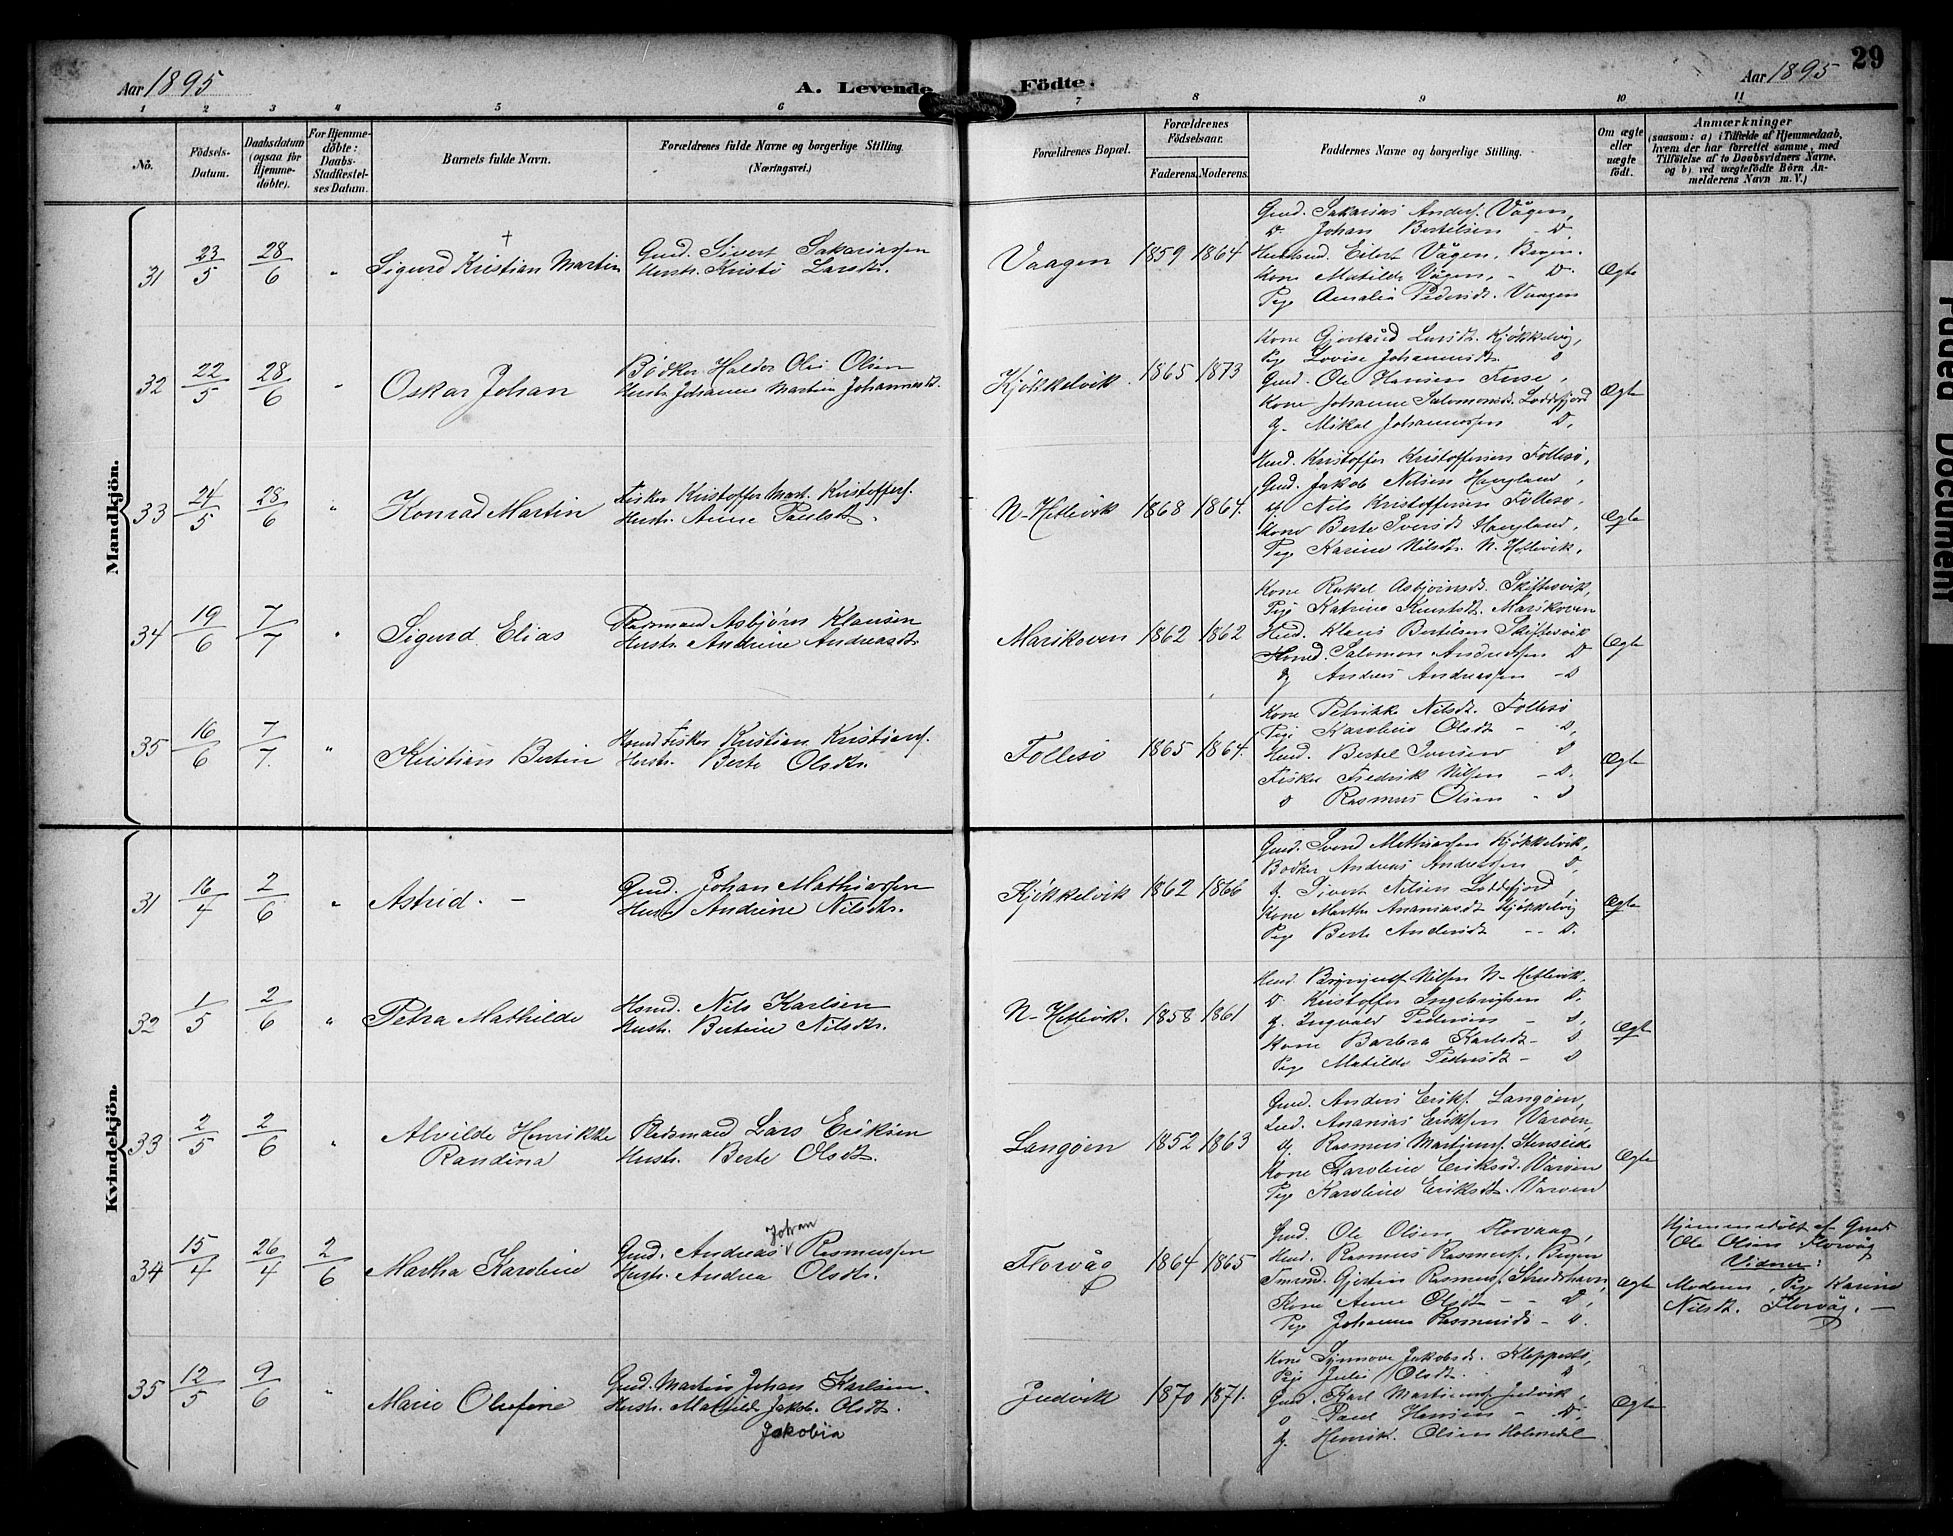 Aar 1895
A. Levende Födte.
Aar 1895
29
1 2 3 4 5 6 7 8 9 10 11
No.
Födsels-Datum.
Daabsdatum (ogsaa for Hjemme-döbte).
For Hjemme-döbte: Daabs-Stadfæstel-ses Datum.
Barnets fulde Navn.
Forældrenes fulde Navne og borgerlige Stilling.
(Næringsvei.)
Forældrenes Bopæl.
Forældrenes Födselsaar.
Faderens. Moderens.
Faddernes Navne og borgerlige Stilling.
Om ægte eller uægte födt.
Anmærkninger
(saasom: a) i Tilfælde af Hjemmedaab,
hvem der har forrettet samme, med
Tilföielse af to Daabsvidners Navne.
og b) ved uægtefödte Börn An-
melderens Navn m. V.)
Mandkjön.
31 23/5 28/6 " Sigurd Kristian Martin †
Gmd. Sivert Sakariassen
Hustr. Kristi Larsdt.
Vaagen 1859 1864
Gmd. Sakarias Anders. Vågen,
D Johan Bertelsen - D
Husmd. Eilert Vågen, Bergen.
Kone Matilde Vågen, - D.
Pige Amalia Pedersdt. Vaagen
Ægte
32 22/5 28/6 " Oskar Johan
Bödker Haldor Olai Olsen
Hustr. Johanne Martin Johannesdt.
Kjøkkelvik. 1865 1873
Kone Gjertrud Larsdt. Kjøkkelvig,
Pige Lovise Johannesdt. D
Gmd. Ole Hansen
Kone Johanne Salomonsd. Loddefjord
g. Mikal Johannessen D.
Ægte
33 24/5 28/6 " Konrad Martin
Fisker Kristoffer Mart. Kristoffers.
Hustr. Anne Paulsdt.
N-Hetlevik 1868 1864.
Husmd. Kristoffer Kristoffersen Follesø,
Gmd. Jakob Nilsen Haugland,
g. Nils Kristoffersen Follesø.
Kone Berte Iversdt Haugland,
Pige Karine Nilsdt. N. Hetlevik.
Ægte
34 19/6 7/7 " Sigurd Elias
Pladsmand Asbjørn Klausen
Hustr. Andrine Andreasdt.
Marikoven 1862 1862
Kone Rakel Asbjørnsdt. Skiftesvik,
Pige Katrine Knutsdt. Marikoven
Husmd. Klaus Bertelsen Skiftesvik
Salomon Andreassen D
g Andreas Andreassen - D
Ægte
35 16/6 7/7. " Kristian Bertin
Husmd Fisker Kristian Kristians.
Hustr. Berte Olsdtr.
Follesø 1865 1864.
Kone Petrikke Nilsdt. Follesø
Pige Karoline Olsdt - D,
Husmd. Bertel Iversen D
Fisker Fredrik Nilsen - D.
D Rasmus Olsen - D
Ægte
Kvindekjön.
31 16/4 2/6 " Astrid. -
Gmd. Johan Mathiassen
Hustr. Andrine Nilsdtr.
Kjøkkelvik 1862 1866
Gmd. Svend Mathiassen Kjøkkelvik,
Bødker Andreas Andreassen D,
g. Sivert Nilsen Loddefjord,
Kone Martha Ananiasdt Kjøkkelvig
Pige Berte Andersdt - - D.
Ægte
32 1/5 2/6 " Petra Mathilde
Husmd. Nils Karlsen
Hustr. Bertine Nilsdtr.
N-Hetlevik. 1858 1861
Husmd Brynjulf Nilsen N-Hetlevik.
D Kristoffer Ingebrigtsen D.
g. Ingvald Pedersen - D.
Kone Barbra Karlsdt - D
Pige Matilde Pedersdt - D
Ægte
33 2/5 2/6 " Alvilde Henrikke
Randina
Pladsmand Lars Eriksen
Hustr. Berte Olsdt.
Langøen 1852 1863
Gmd. Anders Eriks. Langøen,
Ananias Eriksen Varøen,
g. Rasmus Martinus.
Kone Karoline Eriksd. Varøen
Pige Karoline Eriksdt. Varøen
Ægte
34 15/4 26/4 2/6 Martha Karoline
Johan
Gmd. Andreas v Rasmussen
Hustr. Andrea Olsdtr.
Florvåg 1864 1865
Gmd. Ole Olsen Florvaag,
Husmd. Rasmus Rasmuss. Bergen
Gjertin Rasmuss. Strudshavn,
Kone Anne Olsdt - - D,
Pige Johanna Rasmusdt - D.
Ægte
Hjemmedøbt af Gmd
Ole Olsen Florvåg
Vidner:
Moderen, Pige Karine
Nilsdt. Florvåg. -
35 12/5 9/6 " Marie Olufine
Gmd. Martin Johan Karlsen.
Hustr. Mathilde Jakob. Olsdt.
Jakobia
Juvik 1870 1871.
Kone Synnøve Jakobsdt. Kleppestø,
Pige Julie Olsdt. "
Gmd. Karl Martinus. Juvik,
D Paul Hansen - D.
g. Henrik Olsen Holmedal
Ægte
Faded Document